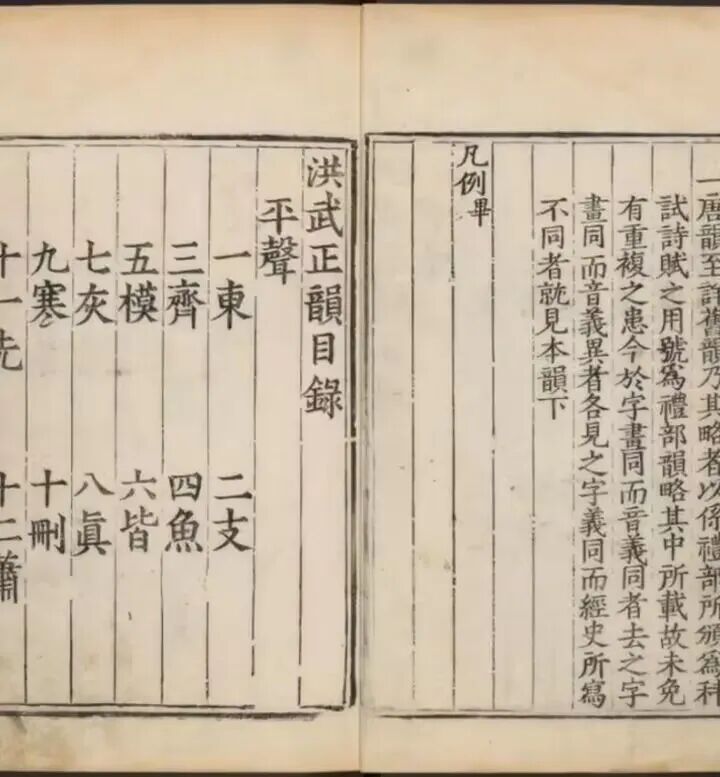 一唐韻至詳舊韻乃其略者以係禮部所頒為科
試詩賦之用號為禮部韻略其中所載故未免
有重複之患今於字畫同而音義同者去之字
畫同而音義異者各見之字義同而經史所寫
不同者就見本韻下
凡例畢
洪武正韻目錄
平聲
一東 二支
三齊 四魚
五模 六皆
七灰 八眞
九寒 十刪
十一先 十二蕭